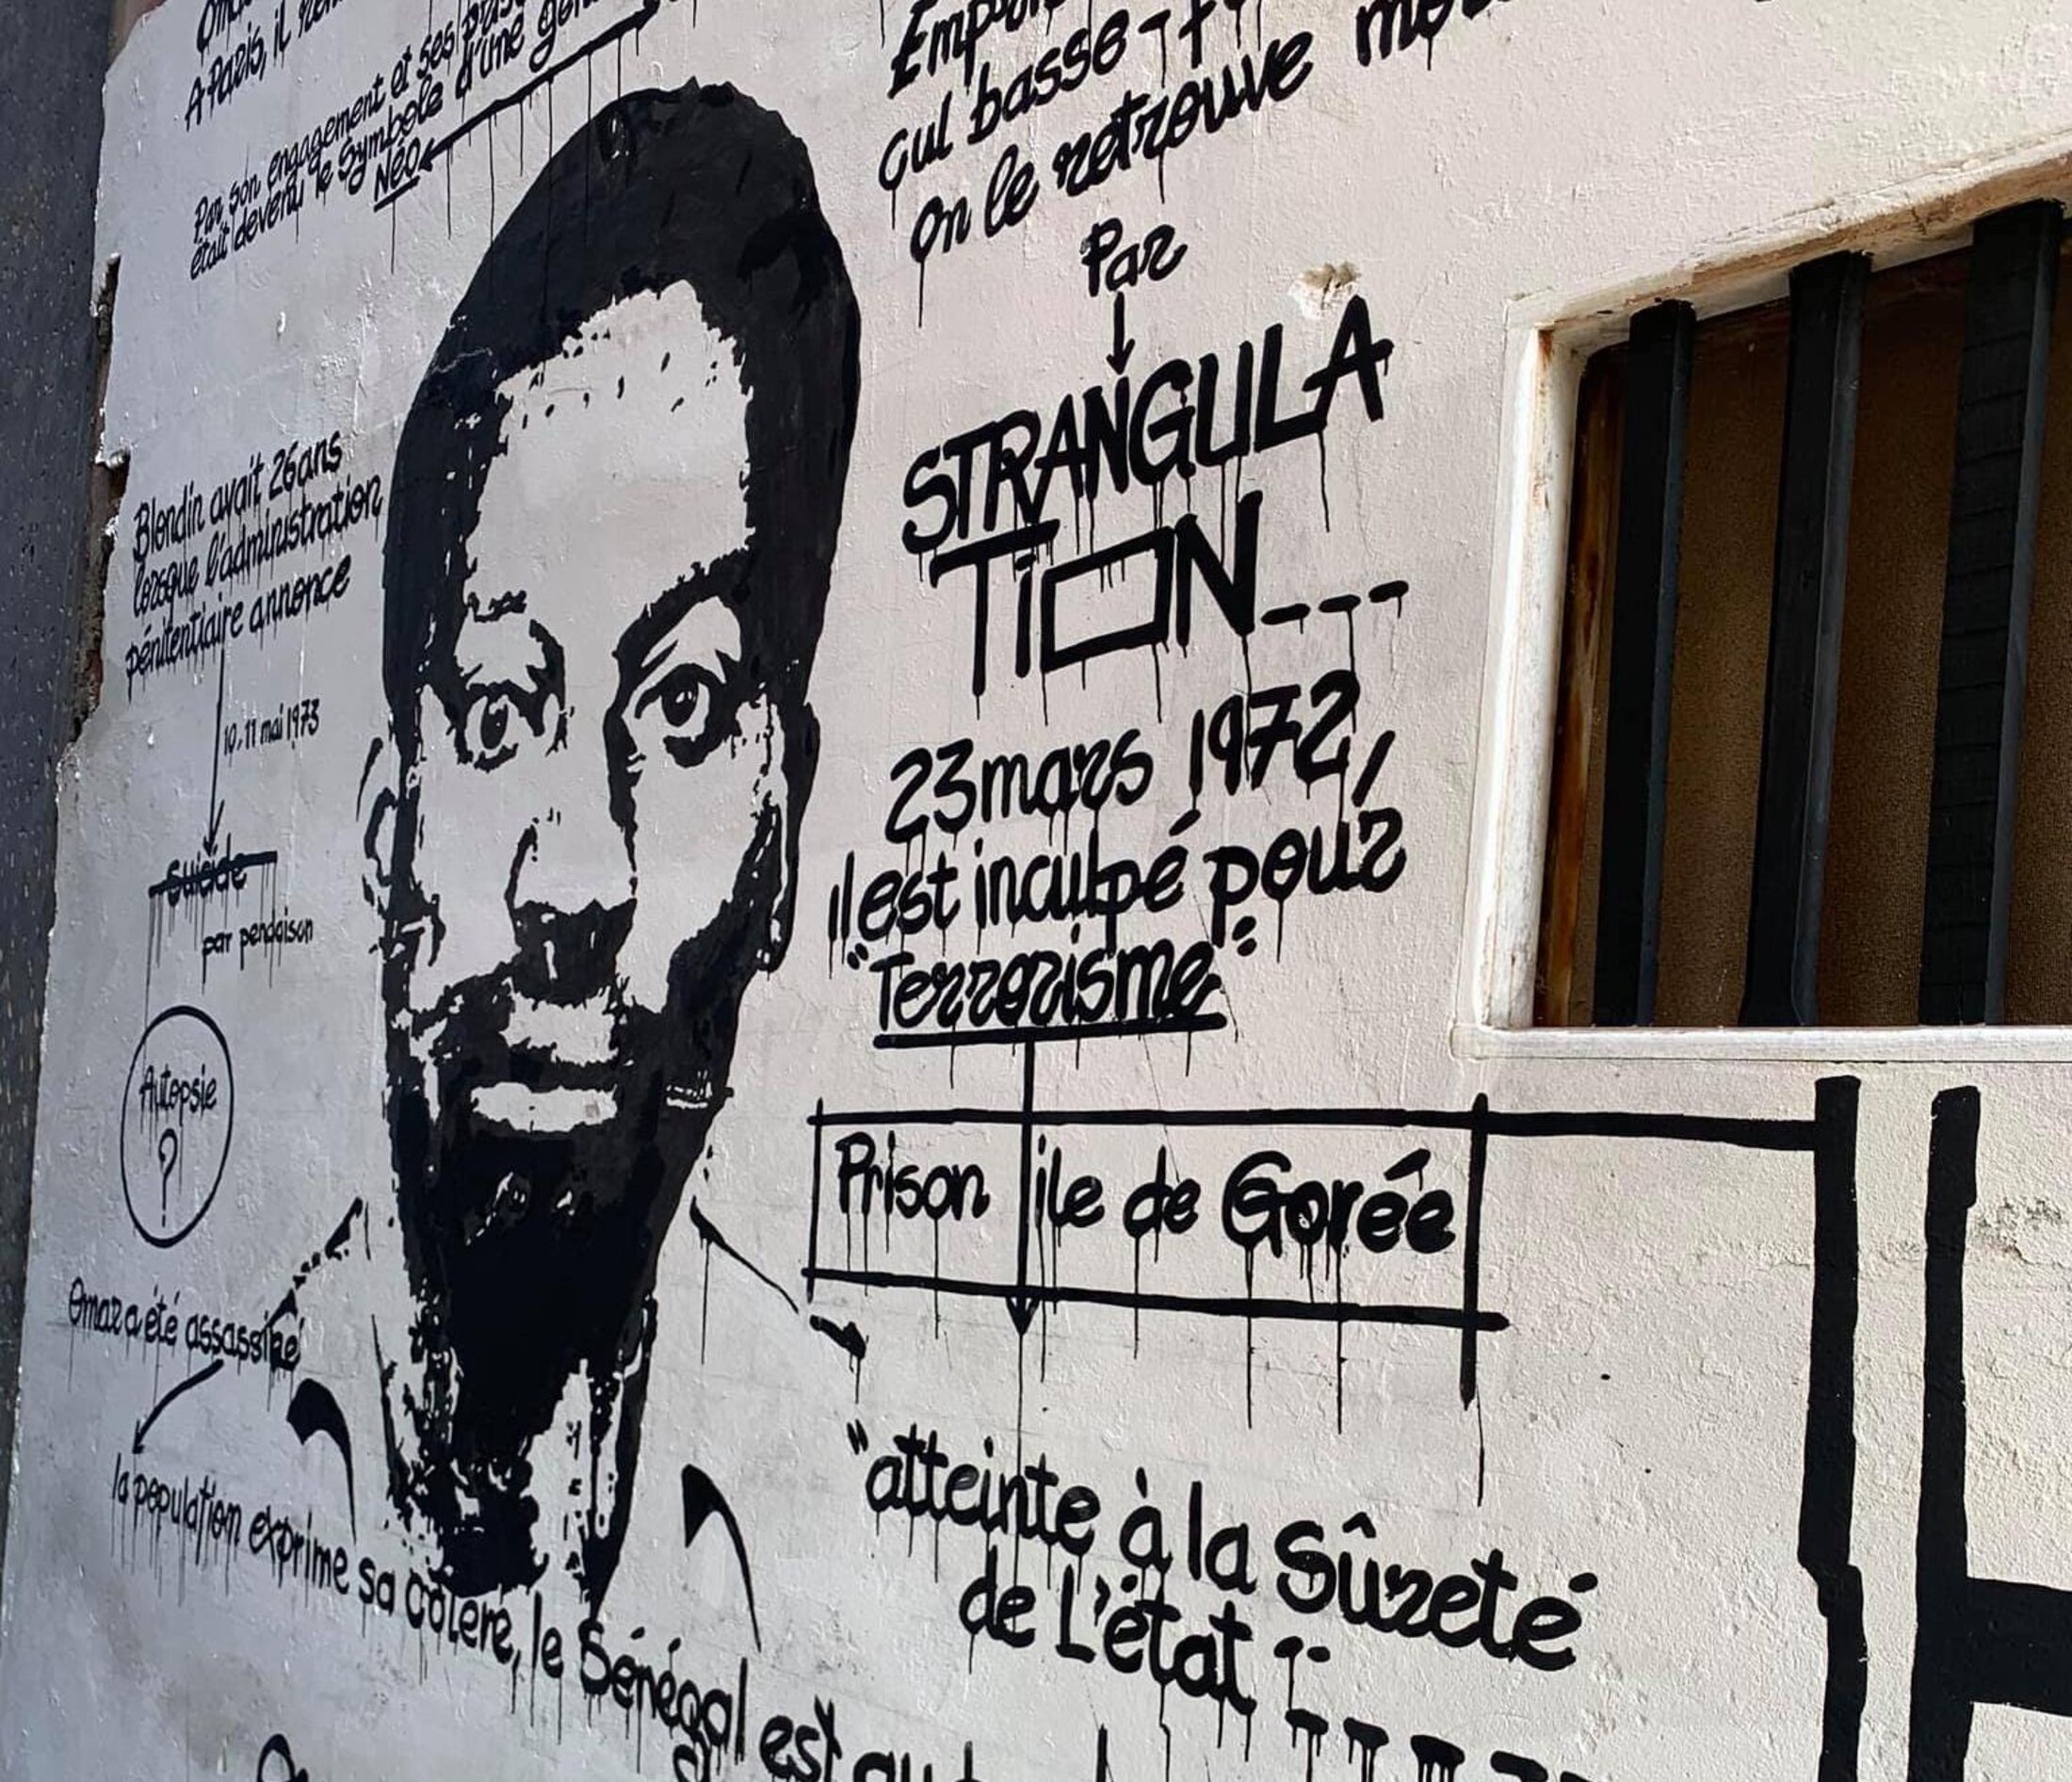 A Paris, il
Par son engagement et ses
était devenu le symbole d'une
Néo
Blondin avait 26ans
lorsque l'administration
pénitentiaire annonce
10, 11 mai 1973
Suicide
par pendaison
Autopsie
?
Omar a été assassiné
la population exprime sa colere, le Sénégal est au
cul basse-f
on le retrouve
Par
STRANGULA
TiON---
23 mars 1972,
il est inculpé pour
"Terrorisme":
Prison ile de Gorée
"atteinte à la Sûreté
de L'état"